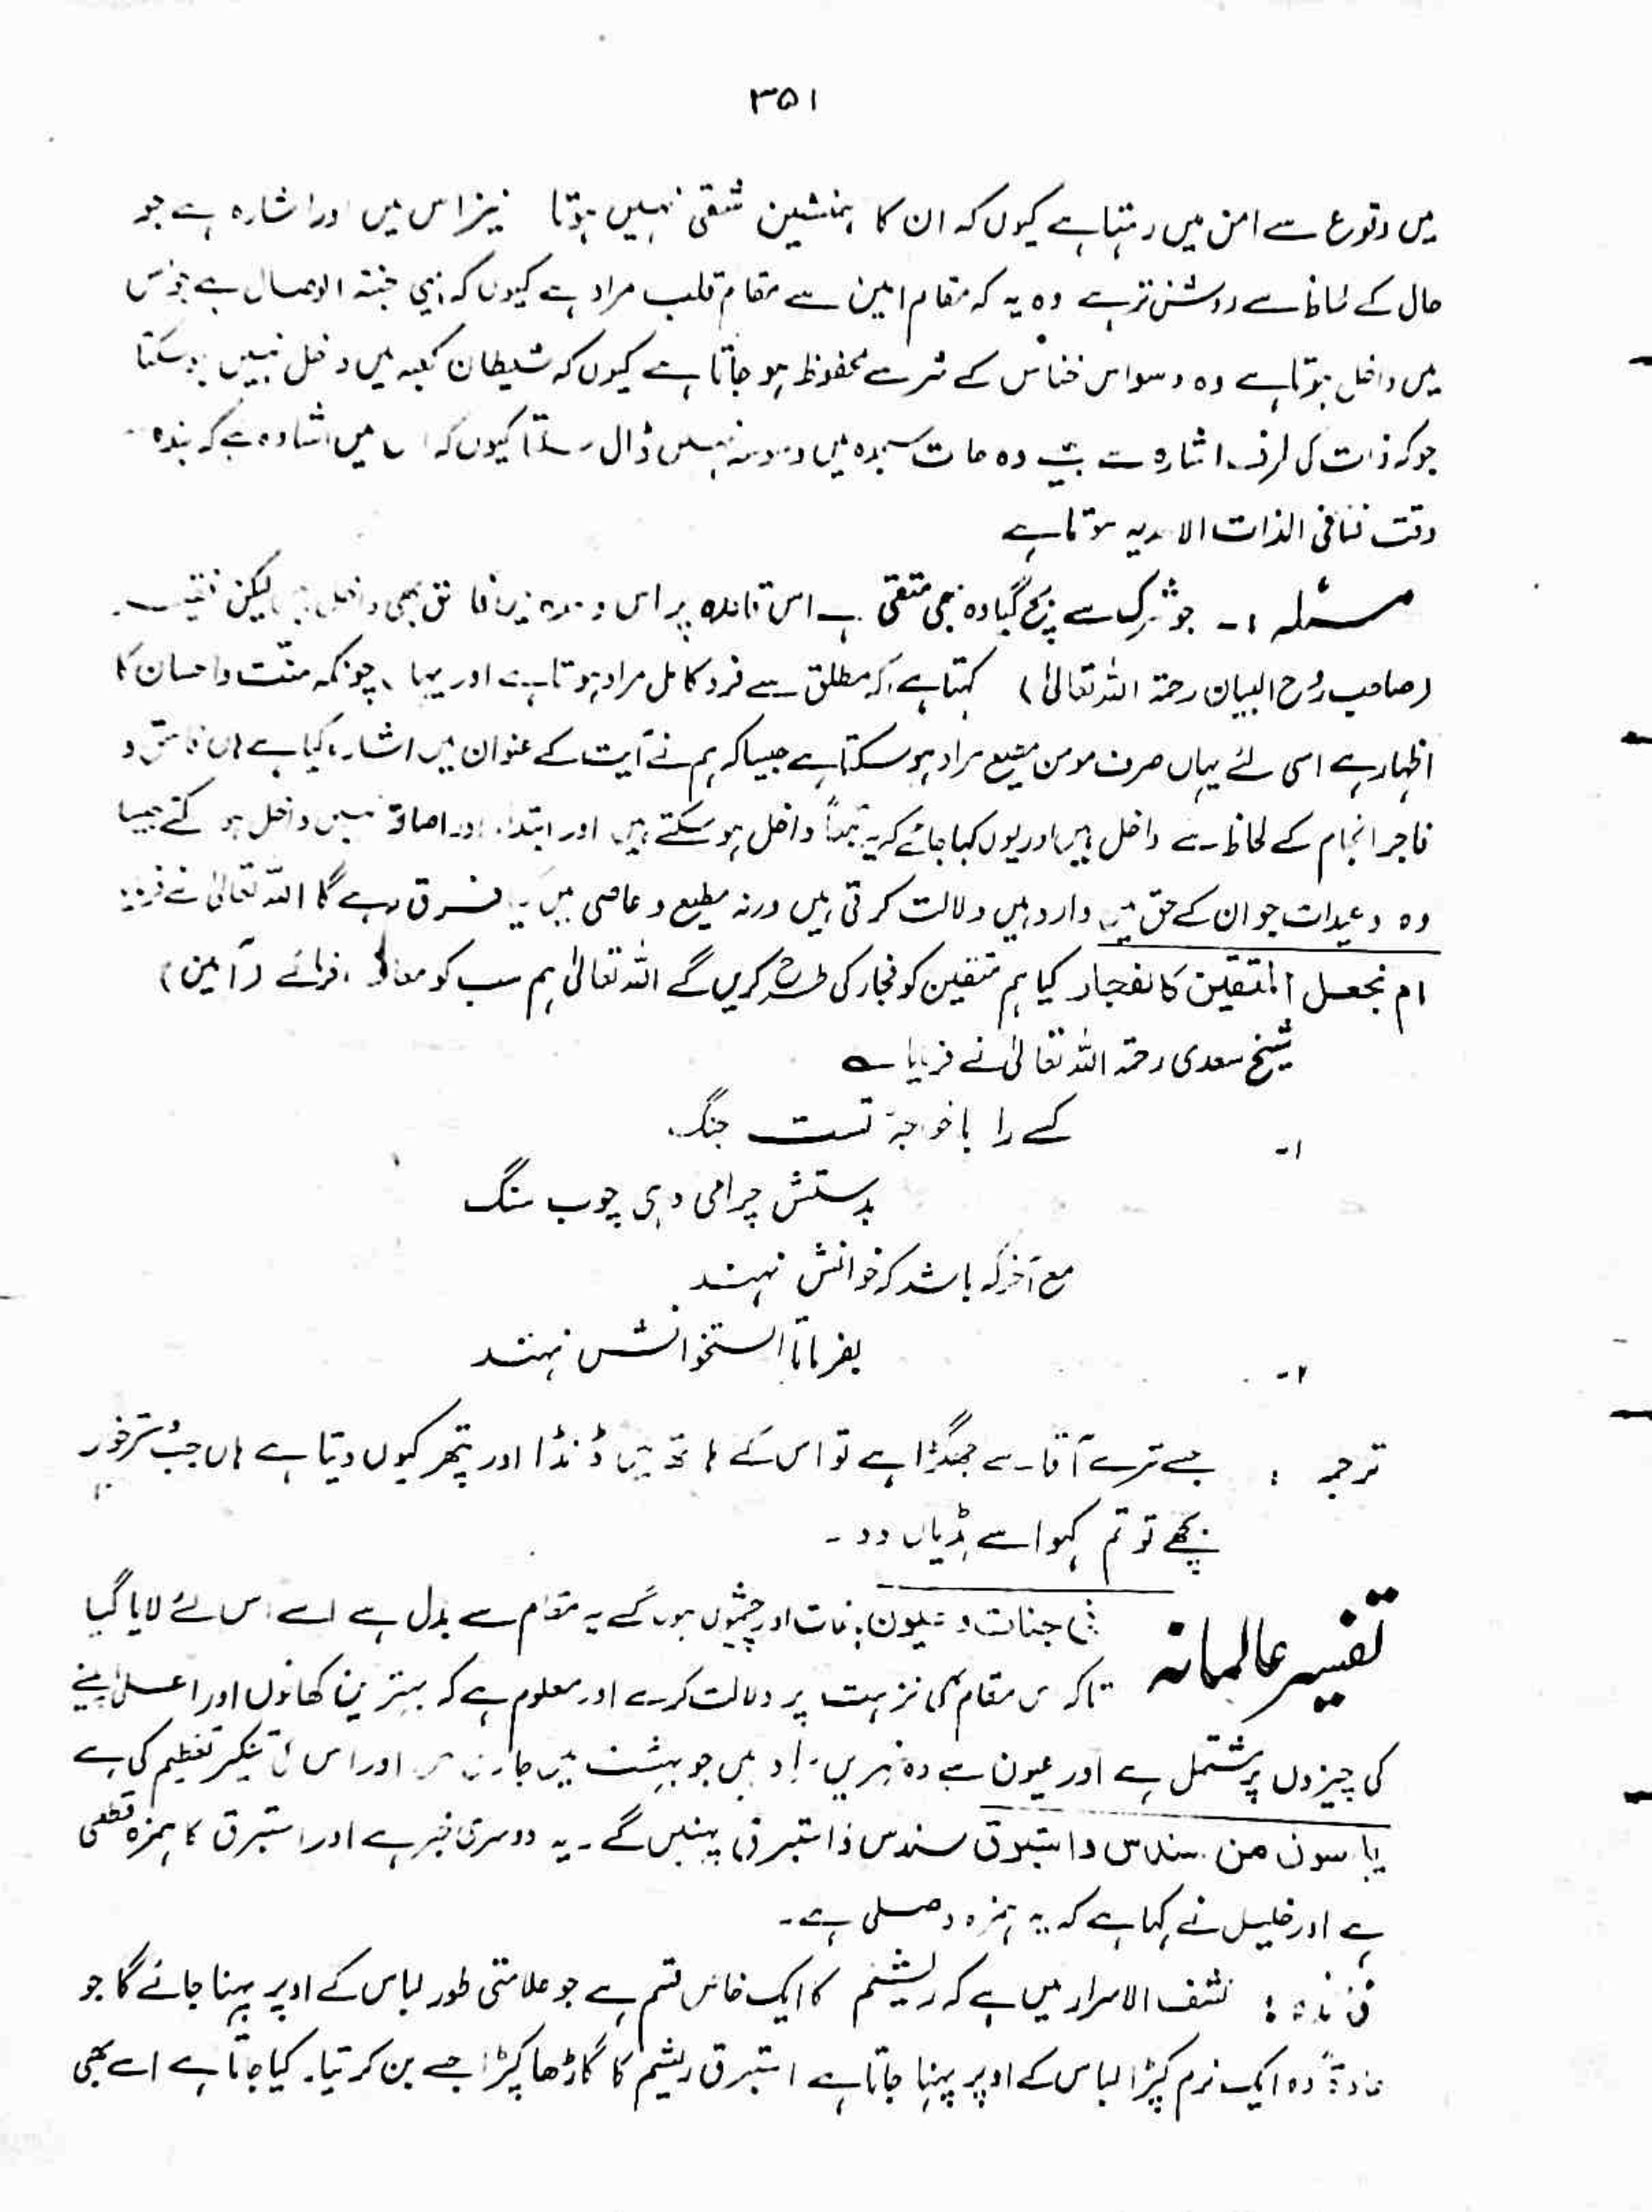 ۳۵۱
میں وقوع سے امن میں رہتا ہے کیوں کہ ان کا ہمنشین شقی نہیں ہوتا نیز اس میں اور اشارہ ہے جو
حال کے لحاظ سے روشن تر ہے وہ یہ کہ مقام امین سے مقام قلب مراد ہے کیوں کہ یہی جنۃ الوصال ہے جو اس
میں داخل ہوتا ہے وہ وسواس خناس کے شر سے محفوظ ہو جاتا ہے کیوں کہ شیطان کعبہ میں داخل نہیں ہو سکتا
جو کہ ذات کی طرف اشارہ ہے وہ حالت سجدہ میں وسوسہ نہیں ڈال سکتا کیوں کہ اس میں اشارہ ہے کہ بندہ
وقت فنا فی الذات الاحدیہ ہوتا ہے
مسئلہ :۔ جو شرک سے بچ گیا وہ بھی متقی ہے اس قاعدہ پر اس وعدہ میں فاسق بھی داخل ہے لیکن فقیر
(صاحب روح البیان رحمۃ اللہ تعالیٰ) کہتا ہے کہ مطلق سے فرد کامل مراد ہوتا ہے اور یہاں چونکہ منّت و احسان کا
اظہار ہے اسی لئے یہاں صرف مومن مطیع مراد ہو سکتا ہے جیسا کہ ہم نے آیت کے عنوان میں اشارہ کیا ہے ہاں فاسق و
فاجر انجام کے لحاظ سے داخل ہیں اور یوں کہا جائے کہ یہ تبعاً داخل ہو سکتے ہیں اور ابتداء اور اصالۃ نہیں داخل ہو سکتے جیسا
وہ وعیدات جو ان کے حق میں وارد ہیں دلالت کرتی ہیں ورنہ مطیع و عاصی میں کیا فرق رہے گا اللہ تعالیٰ نے فرمایا
ام نجعل المتقین کالفجار کیا ہم متقین کو فجار کی طرح کریں گے اللہ تعالیٰ ہم سب کو معاف فرمائے (آمین)
شیخ سعدی رحمۃ اللہ تعالیٰ نے فرمایا ؎
۱- کسے را با خواجۂ تست جنگ
بدستش چرا می دہی چوب سنگ
مع آخر کہ باشد کہ خوانش نہند
۲- بفرما تا استخوانش نہند
ترجمہ : جسے ترے آقا سے جھگڑا ہے تو اس کے ہاتھ میں ڈنڈا اور پتھر کیوں دیتا ہے ہاں جب دسترخوان
بچھے تو تم کہو اسے ہڈیاں دو ۔
تفسیر عالمانہ
فی جنات و عیون باغات اور چشموں ہوں گے یہ مقام سے بدل ہے اسے اس لئے لایا گیا
تاکہ اس مقام کی نزہت پر دلالت کرے اور معلوم ہے کہ بہترین کھانوں اور اعلیٰ پینے
کی چیزوں پر مشتمل ہے اور عیون سے وہ نہریں مراد ہیں جو بہشت میں جاری ہیں اور اس کی تنکیر تعظیم کی ہے
یلبسون من سندس و استبرق سندس و استبرق پہنیں گے ۔ یہ دوسری خبر ہے اور استبرق کا ہمزہ قطعی
ہے اور خلیل نے کہا ہے کہ یہ ہمزہ وصلی ہے ۔
فائدہ : کشف الاسرار میں ہے کہ ریشم کا ایک خاص قسم ہے جو علامتی طور لباس کے اوپر پہنا جائے گا جو
عادۃً وہ ایک نرم کپڑا لباس کے اوپر پہنا جاتا ہے استبرق ریشم کا گاڑھا کپڑا جسے بن کر تیار کیا جاتا ہے اسے بھی